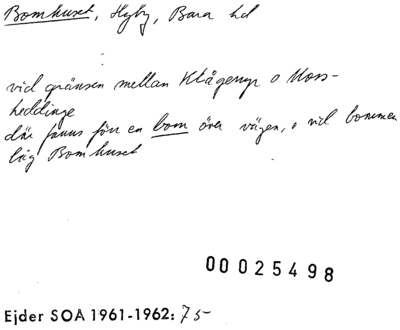 Bomhuset, Hyby, Bara hd
vid gränsen mellan Klågerup o Moss-
heddinge
där fanns förr en bom över vägen, o vid bommen
låg Bomhuset
00025498
Ejder SOÅ 1961-1962: 75